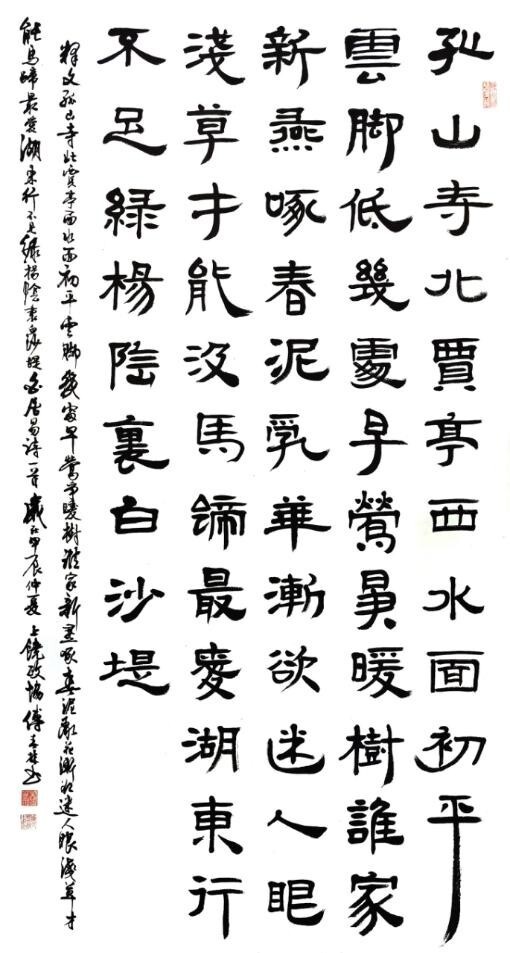 孤山寺北賈亭西水面初平
雲脚低幾處早鶯爭暖樹誰家
新燕啄春泥乳華漸欲迷人眼
淺草才能沒馬蹄最愛湖東行
不足綠楊陰裏白沙堤
釋文孤山寺北賈亭西水面初平雲脚幾處早鶯爭暖樹誰家新燕啄春泥亂花漸欲迷人眼淺草才
能馬蹄最愛湖東行不足綠楊陰裏沙堤白居易詩一首歲在甲辰仲夏上饒政協傅